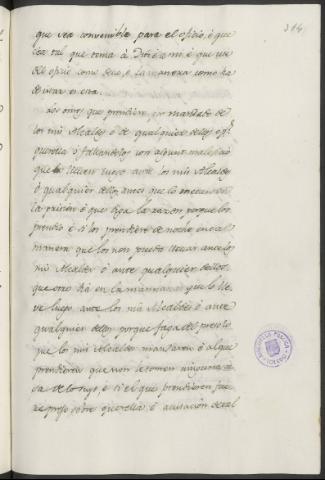 314
que sea convenible para el oficio, è que
sea tal que tema à Dios è a mi è que use
del oficio como deve, è la manera como ha
de usar es esta.
Los omes que prendiere por mandado de
los mis Alcaldes ò de qualquier dellos ò por
querella ò fallandolos con algun maleficio
que los lleven luego ante los mis Alcaldes
ò qualquier dellos antes que los meta en
la prision è que diga la razon porque los
prendio è si los prendiere de noche en tal
manera que los non pueda llevar ante los
mis Alcaldes ò ante qualquier dellos
que otro dia en la mañana que los lle
ve luego ante los mis Alcaldes ò ante
qualquier dellos porque faga del preso lo
que los mis Alcaldes mandaren è al que
prendieren que non le tomen ninguna co
sa de lo suyo, è si el que prendieren fue
re preso sobre querella, è acusacion de tal
BIBLIOTECA PUBLICA
TOLEDO